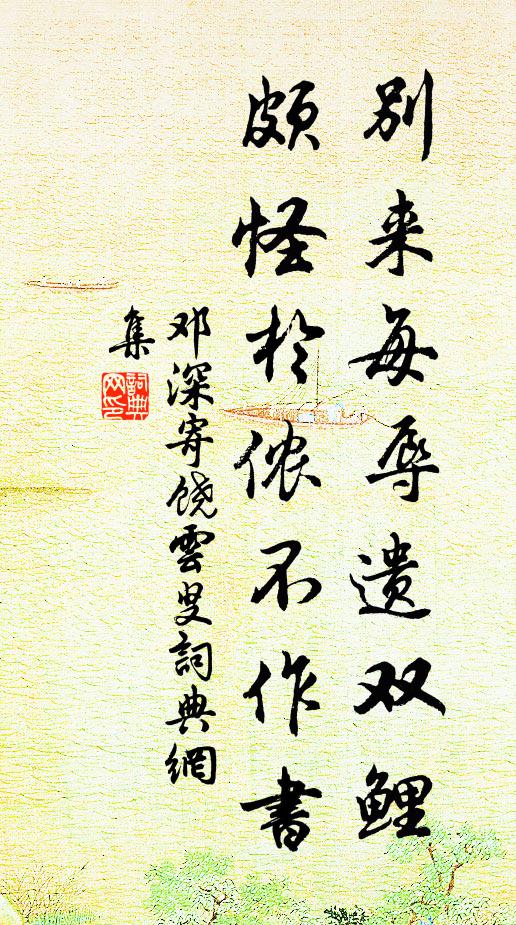 别来每辱遗双鲤
颇怪於侬不作書
邓深寄饶雲叟詞典網
集
詞典
网印